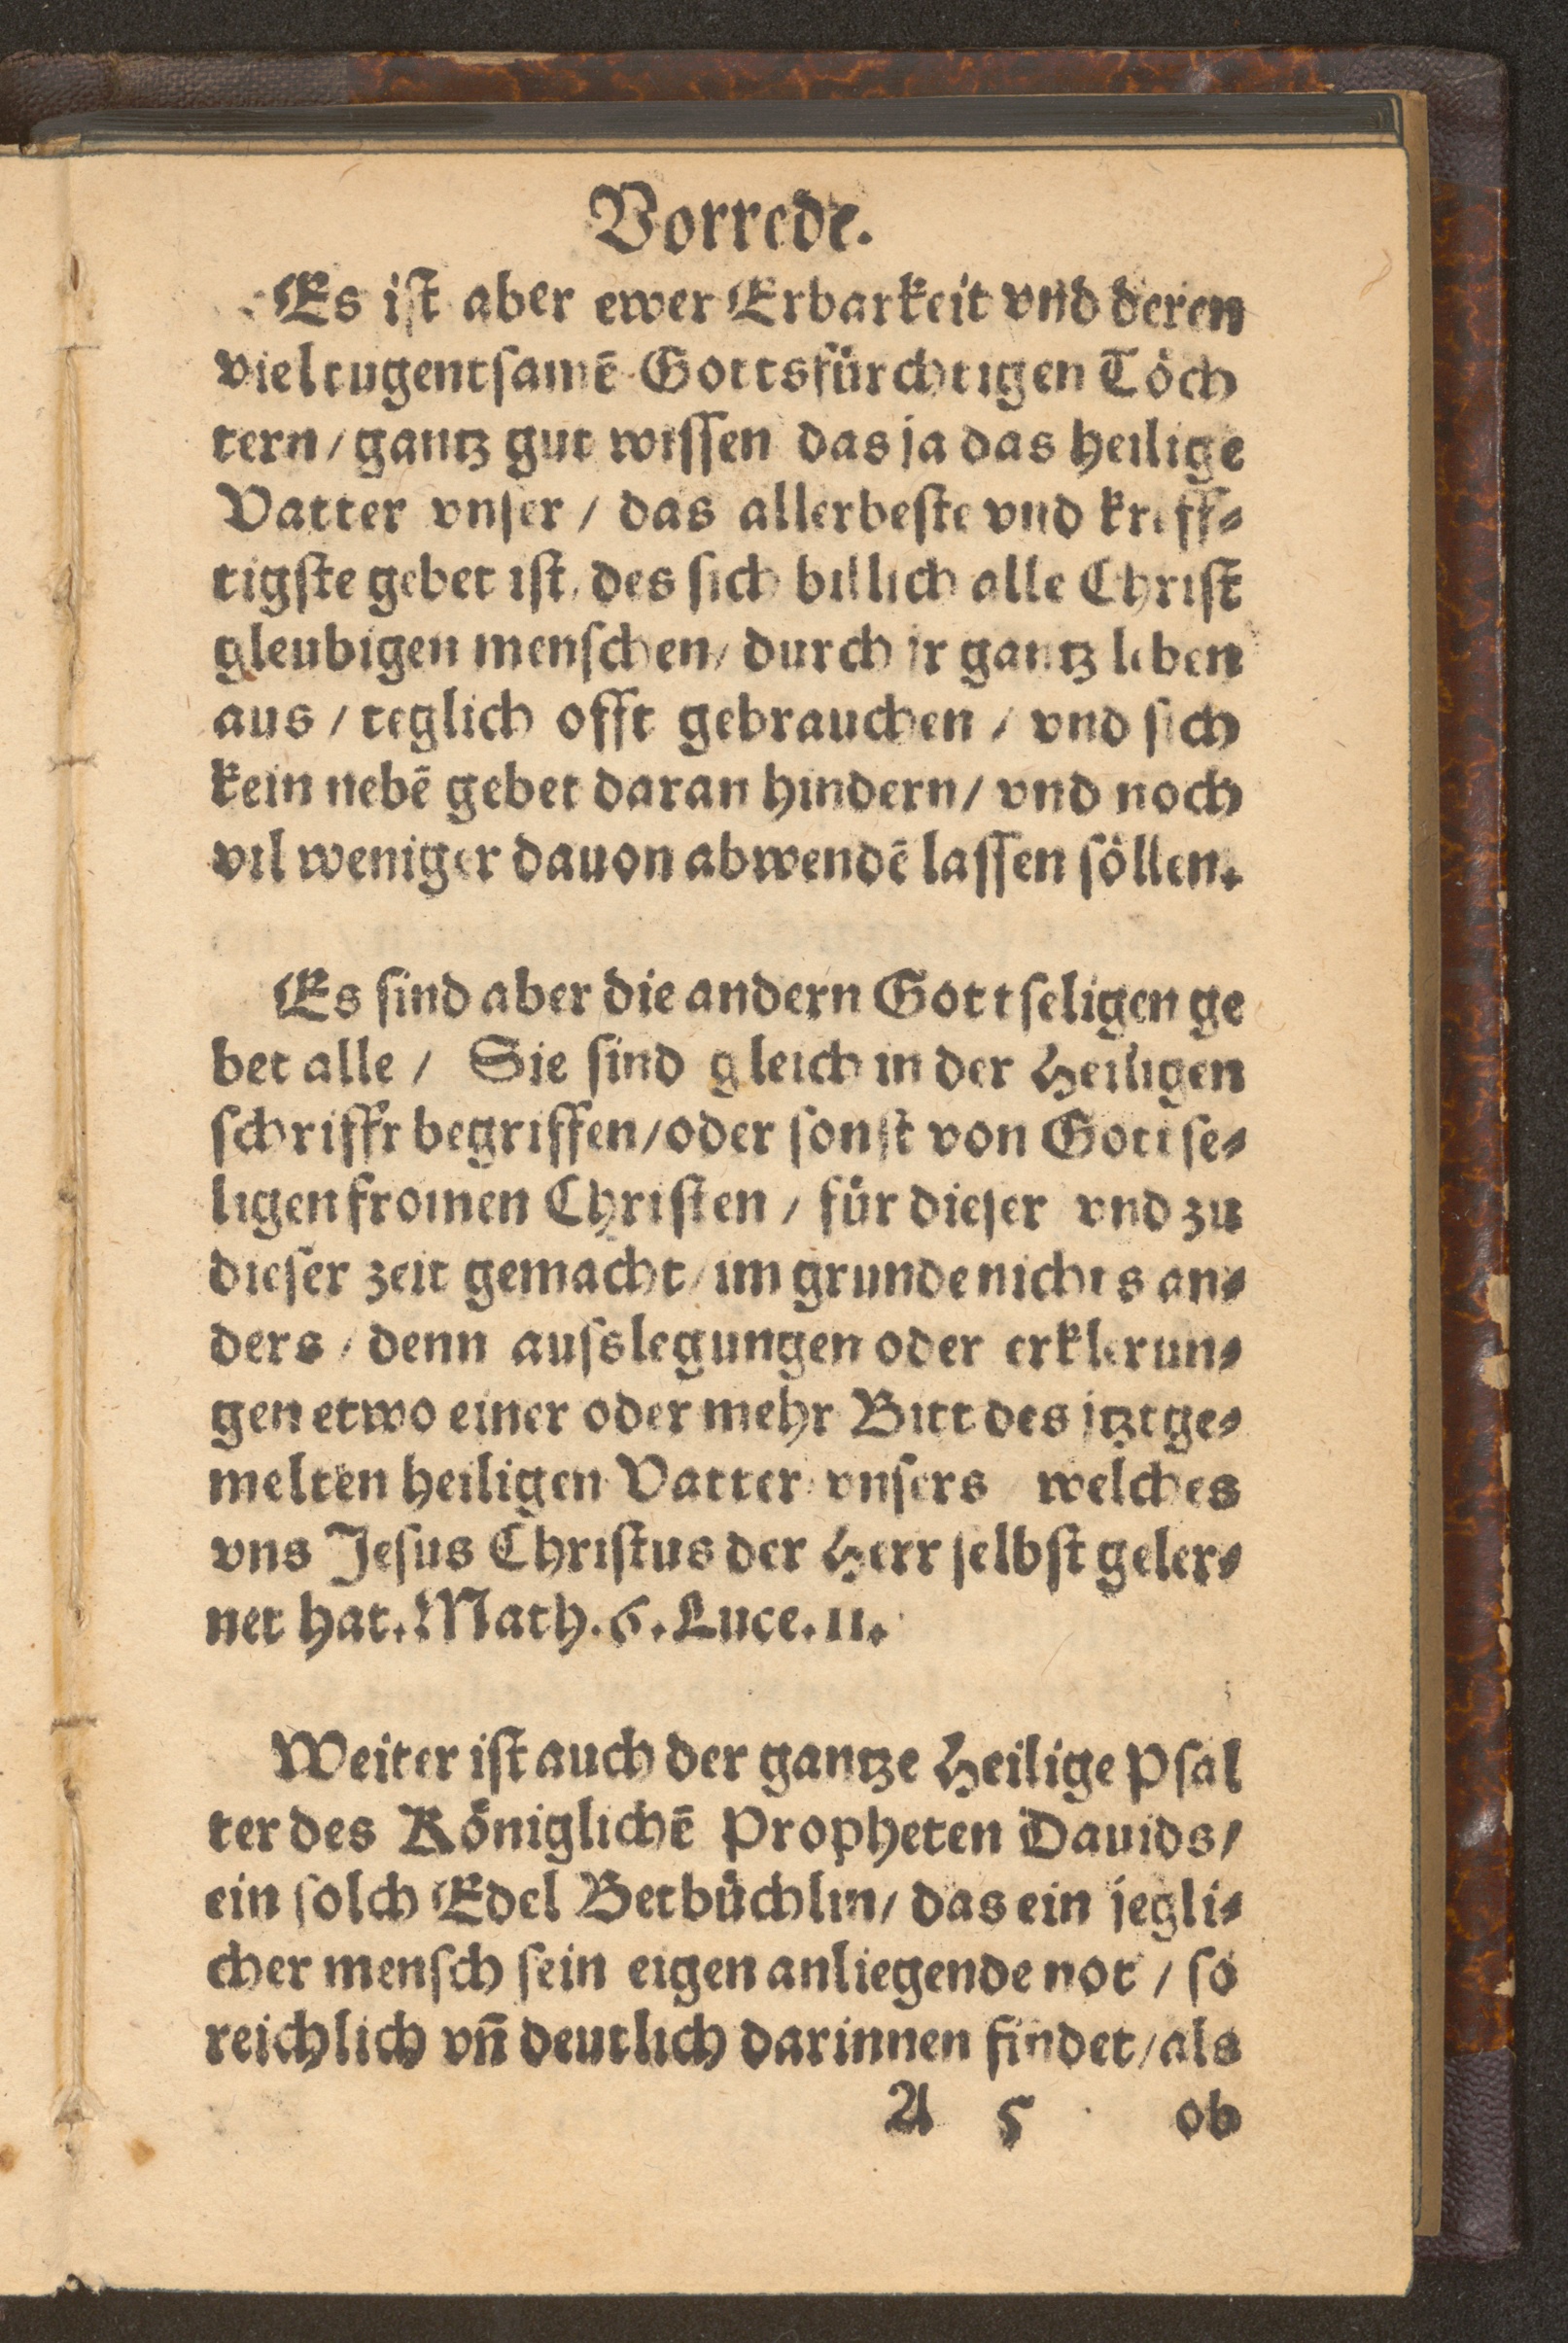 Vorrede.
Es iſt aber ewer Erbarkeit vnd deren
vieltugentſamẽ Gottsfürchtigen Töch
tern / gantz gut wiſſen das ja das heilige
Vatter vnſer / das allerbeſte vnd kreff⸗
tigſte gebet iſt, des ſich billich alle Chriſt
gleubigen menſchen / durch jr gantz leben
aus / teglich offt gebrauchen / vnd ſich
kein nebẽ gebet daran hindern / vnd noch
vil weniger dauon abwendẽ laſſen ſöllen.
Es ſind aber die andern Gottſeligen ge
bet alle / Sie ſind gleich in der Heiligen
ſchrifft begriffen / oder ſonſt von Gottſe⸗
ligen fromen Chriſten / für dieſer vnd zu
dieſer zeit gemacht / im grunde nichts an⸗
ders / denn auſslegungen oder erklerun⸗
gen etwo einer oder mehr Bitt des jtztge⸗
melten heiligen Vatter vnſers welches
vns Jeſus Chriſtus der Herr ſelbſt geler⸗
net hat. Math. 6. Luce. 11.
Weiter iſt auch der gantze Heilige Pſal
ter des Königlichẽ Propheten Dauids /
ein ſolch Edel Betbüchlin / das ein jegli⸗
cher menſch ſein eigen anliegende not / ſo
reichlich vñ deutlich darinnen findet / als
A 5 ob